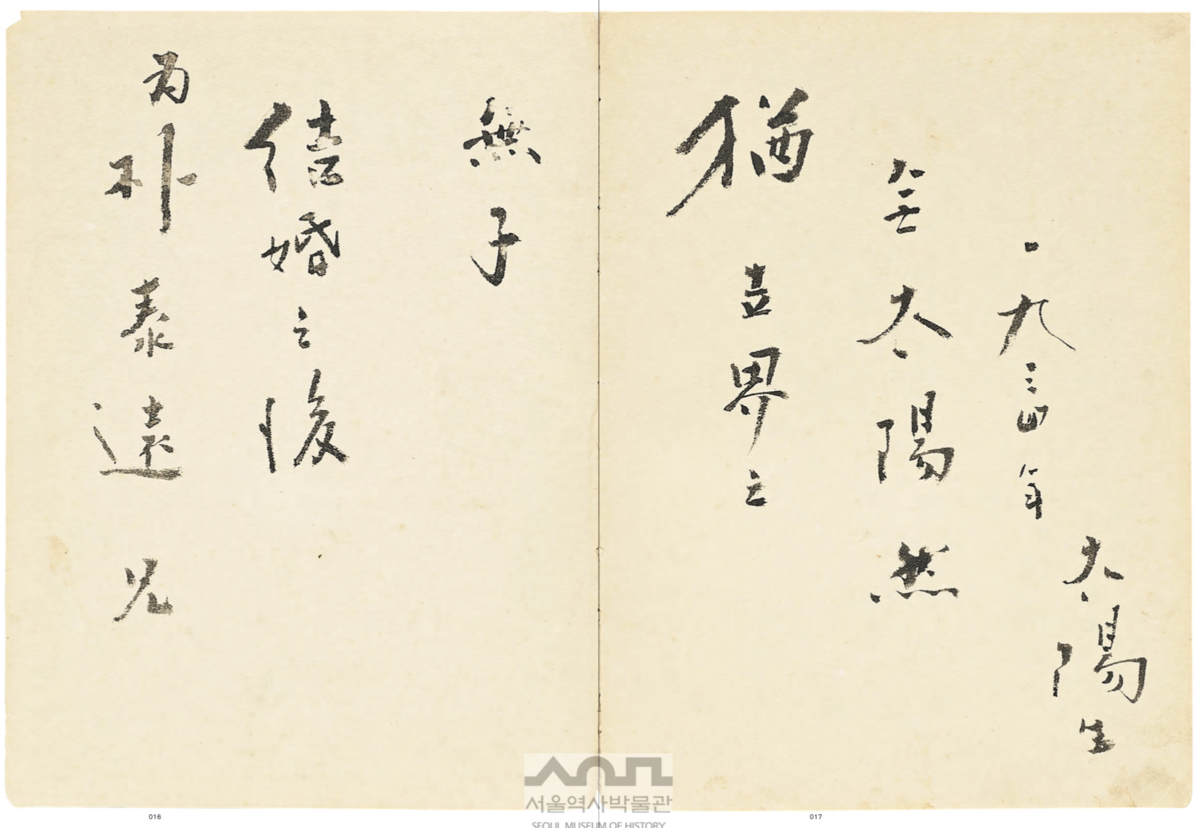 為朴泰遠兄
結婚之後
無子
猶世界之
無太陽然
一九三四年
太陽生
서울역사박물관
SEOUL MUSEUM OF HISTORY
016
017